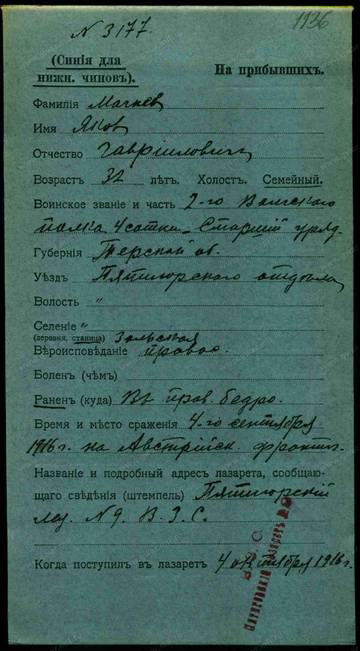 1936
N 3177.
(Синія для
нижн. чиновъ).
На прибывшихъ.
Фамилія
Имя Яков
Отчество Гавріиловичъ
Возрастъ 32 лѣтъ. Холост. Семейный.
Воинское званіе и часть 2-го Волгскаго
полка 4 сотни Старшій уряд.
Губернія Терской об.
Уѣздъ Пятигорскаго отдѣла
Волость "
Селеніе "
(деревня, станица) Зольская
Вѣроисповѣданіе правос.
Боленъ (чѣмъ)
Раненъ (куда) Въ прав. бедро.
Время и мѣсто сраженія 4-го сентября
1916 г. на Австрійск. фронтѣ.
Названіе и подробный адресъ лазарета, сообщаю-
щаго свѣдѣнія (штемпель) Пятигорскій
лаз. N 9. В. З. С.
Когда поступилъ въ лазаретъ 4 октября 1916 г.